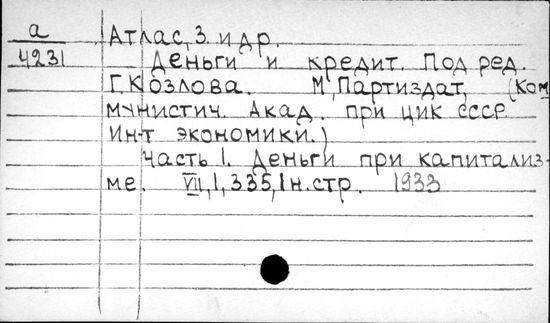 а
4231
Атлас, З. и др.
Деньги и кредит. Под ред.
Г. Козлова. М, Партиздат, (Ком
мунистич. Акад. при ЦИК СССР
Ин-т экономики.)
Часть 1. Деньги при капитализ-
ме. VII, 1, 335, 1 н. стр. 1933